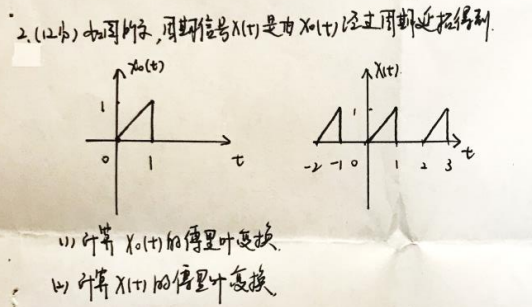 2.(12分)如图所示,周期信号X(t)是由X₀(t)经过周期延拓得到.
X₀(t) X(t)
1 1
0 1 t -2 -1 0 1 2 3 t
(1) 计算 X₀(t)的傅里叶变换.
(2) 计算 X(t)的傅里叶变换.